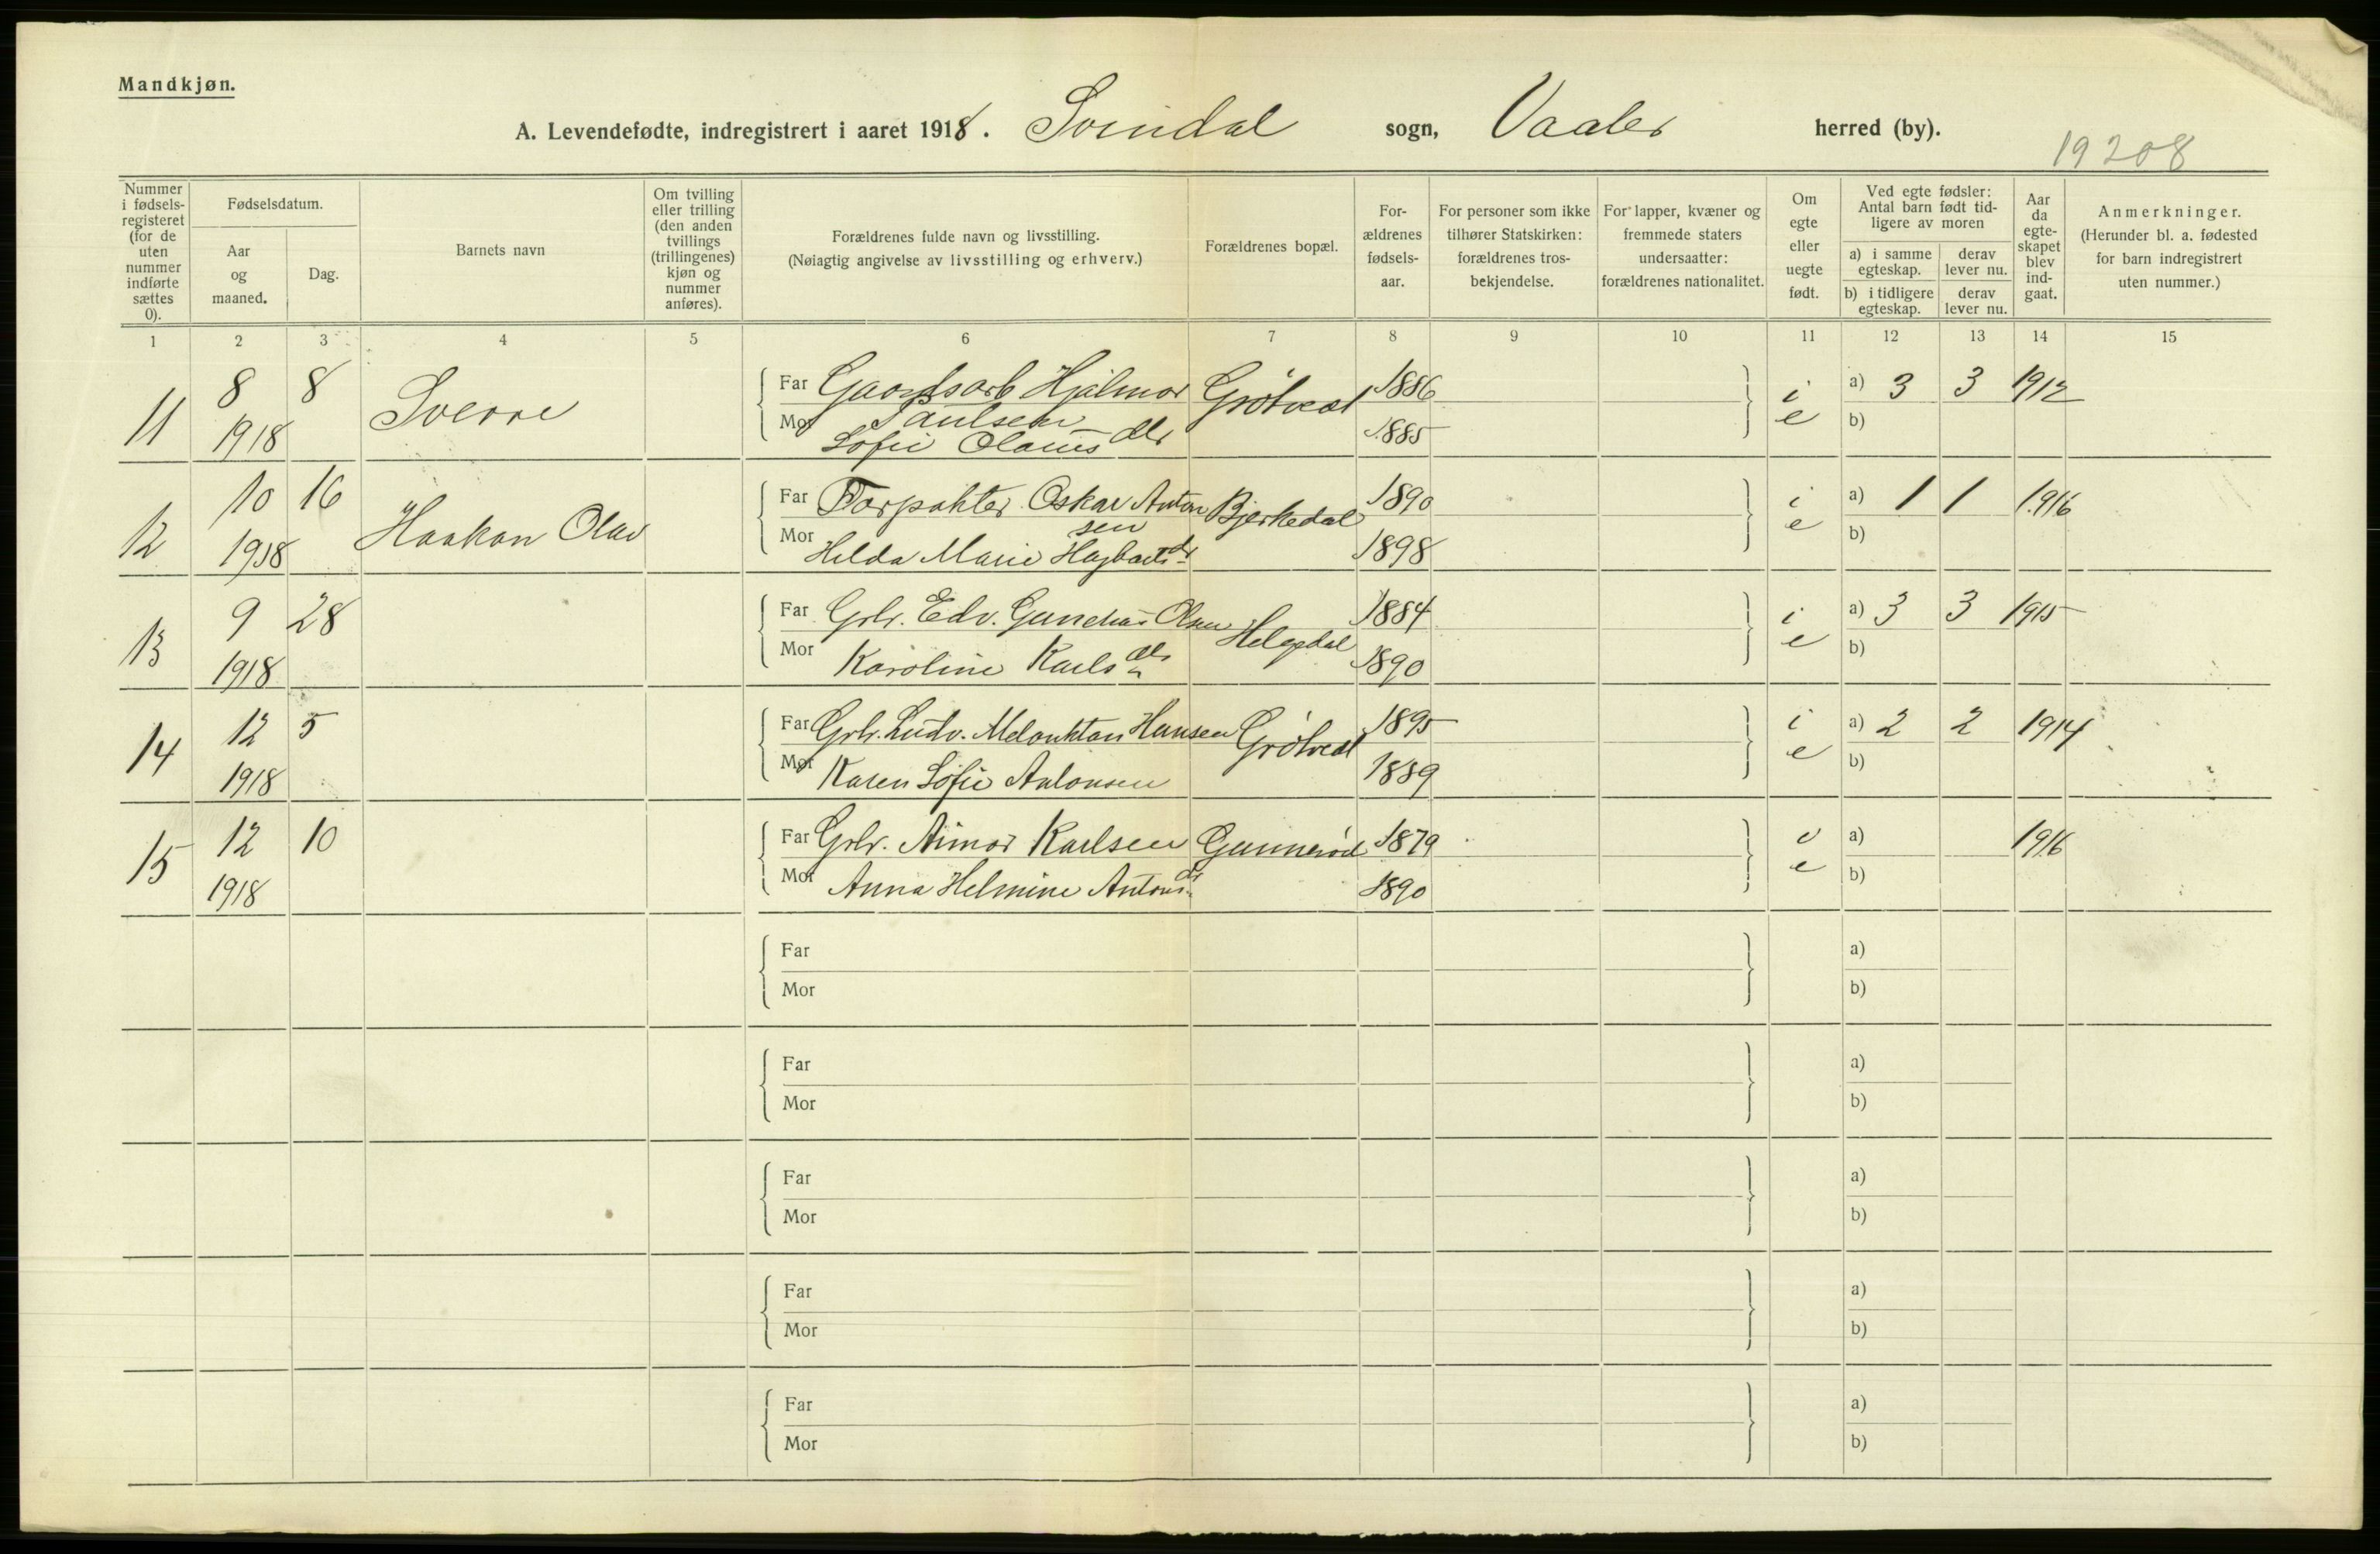 Mandkjøn.
A. Levendefødte, indregistrert i aaret 1918. Svindal sogn, Vaaler herred (by).
19208
Nummer i fødsels-registeret (for de uten nummer indførte sættes 0).
Fødselsdatum.
Aar og maaned.
Dag.
Barnets navn
Om tvilling eller trilling (den anden tvillings (trillingenes) kjøn og nummer anføres).
Forældrenes fulde navn og livsstilling.
(Nøiagtig angivelse av livsstilling og erhverv.)
Forældrenes bopæl.
For-ældrenes fødsels-aar.
For personer som ikke tilhører Statskirken: forældrenes tros-bekjendelse.
For lapper, kvæner og fremmede staters undersaatter: forældrenes nationalitet.
Om egte eller uegte født.
Ved egte fødsler: Antal barn født tid-ligere av moren
a) i samme egteskap.
derav lever nu.
b) i tidligere egteskap.
derav lever nu.
Aar da egte-skapet blev ind-gaat.
Anmerkninger.
(Herunder bl. a. fødested for barn indregistrert uten nummer.)
1 2 3 4 5 6 7 8 9 10 11 12 13 14 15
11 8 8 Sverre Far Gaardsarb Hjalmar Grötvedt 1886 i a) 3 3 1912
1918 Mor Paulsen e b)
Sofie Olaus dtr 1885
12 10 16 Haakon Olav Far Forpakter Oskar Anton Bjerkedal 1890 i a) 1 1 1916
1918 Mor sen e b)
Helda Marie Hagbarts dtr 1898
13 9 28 Far Grbr. Edv. Olsen 1884 i a) 3 3 1915
1918 Mor Karoline Karls dtr 1890 e b)
14 12 5 Far Grbr. Ludv. Melankton Hansen Grötvedt 1895 i a) 2 2 1914
1918 Mor Karen Sofie Antonsen 1889 e b)
15 12 10 Far Grbr. Karlsen Gunneröd 1879 a) 1916
1918 Mor Anna Helmine Antons dtr 1890 e b)
Far a)
Mor b)
Far a)
Mor b)
Far a)
Mor b)
Far a)
Mor b)
Far a)
Mor b)